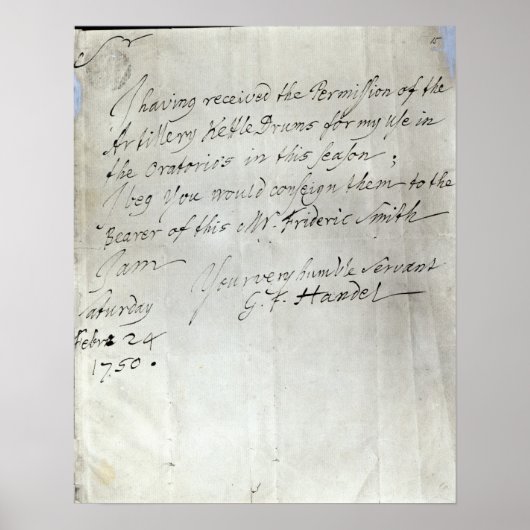 Sr
15
I having received the Permission of the
Artillery Kettle Drums for my use in
the Oratorio's in this Season;
I beg you would consign them to the
Bearer of this Mr. Frideric Smith
I am
Your very humble Servant
G. F. Handel
Saturday
Febr: 24
1750.